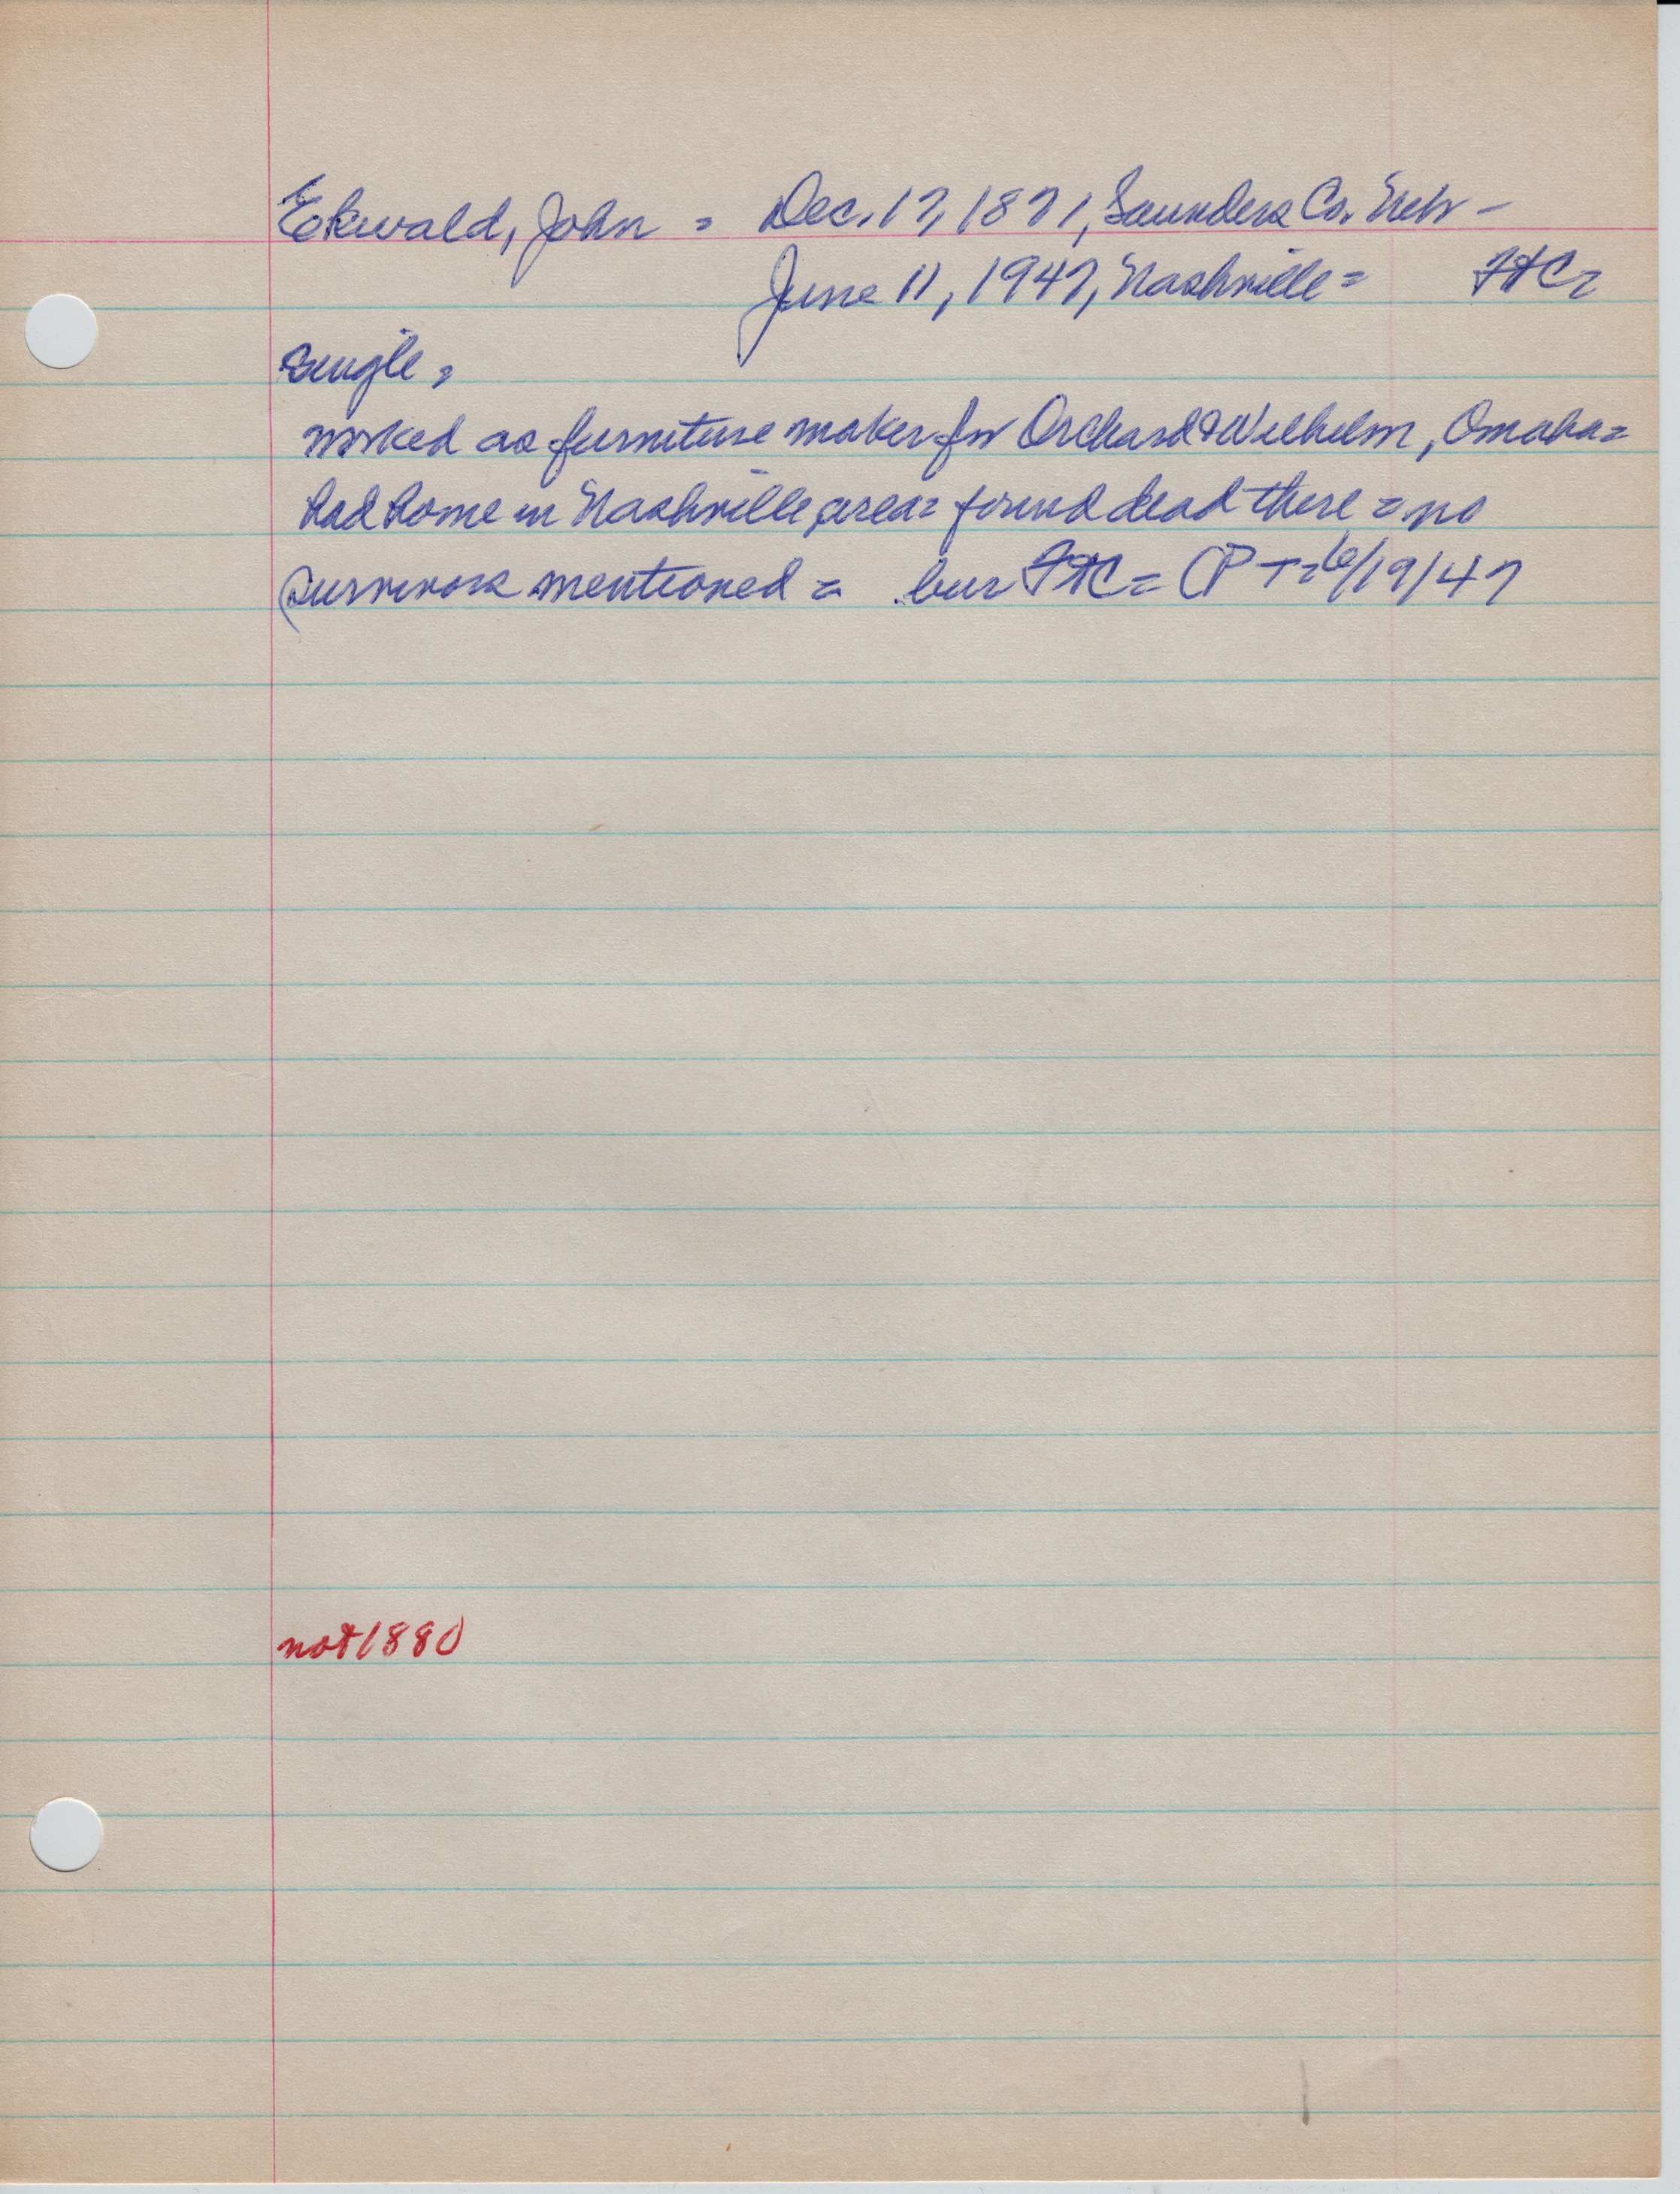 Ekwald, John = Dec. 17, 1871, Saunders Co. Nebr -
June 11, 1947, Nashville = FHC =
single =
worked as furniture maker for Orchard & Wilhelm, Omaha =
had home in Nashville area = found dead there = no
survivors mentioned = bur FHC = PT = 6/19/47
not 1880